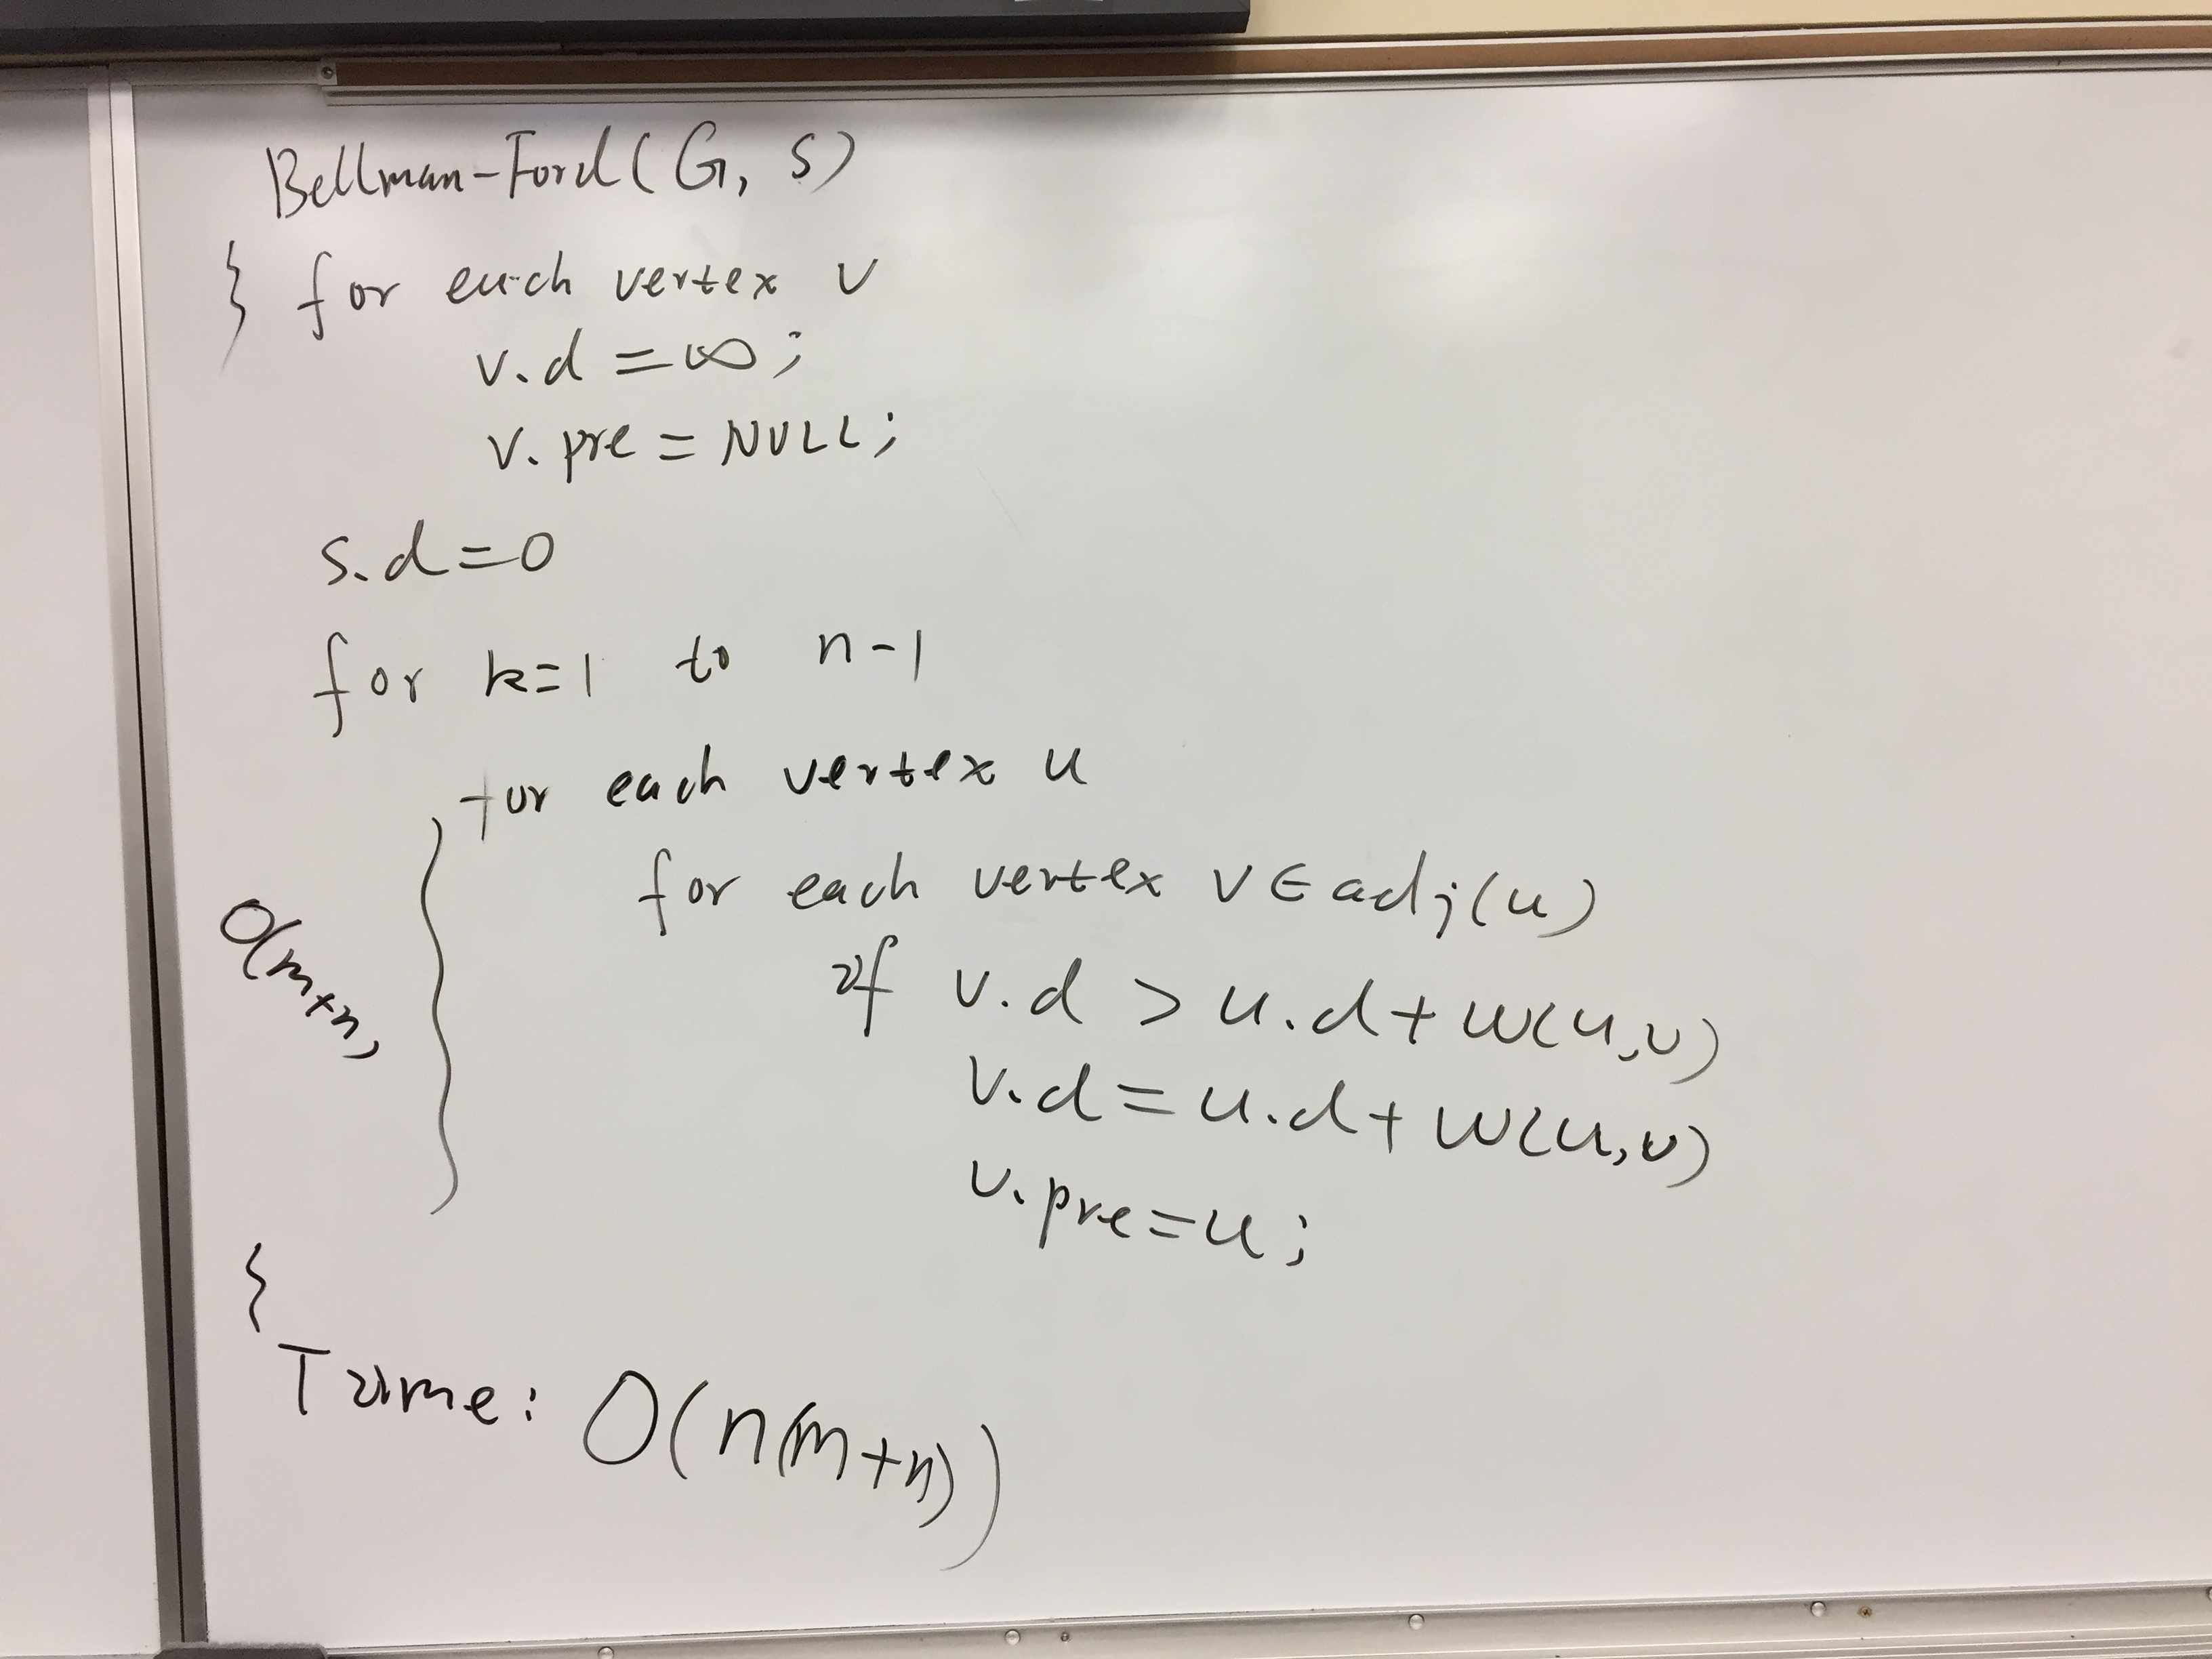 Bellman-Ford(G, s)
} for each vertex v
v.d = ∞;
v.pre = NULL;
s.d=0
for k=1 to n-1
for each vertex u
for each vertex v ∈ adj(u)
if v.d > u.d + w(u,v)
v.d = u.d + w(u,v)
v.pre = u;
O(m+n)
{
Time: O(n(m+n))